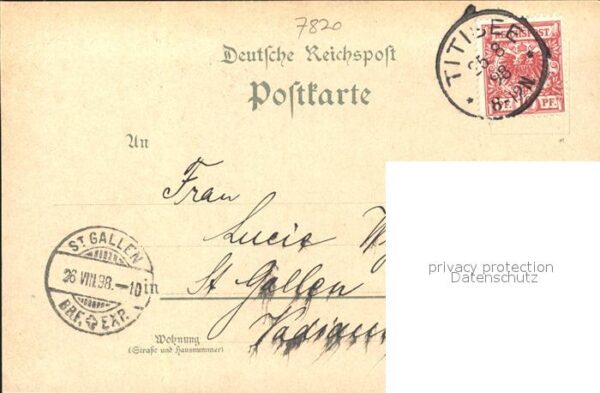 7820
Deutsche Reichspost
Postkarte
TITISEE
25 8
98
8-12N
REICHSPOST
PF.
An
Frau
Lucie
St Gallen
ST. GALLEN
26 VIII.98.–10
BRF. EXP.
in
Wohnung
(Straße und Hausnummer)
privacy protection
Datenschutz